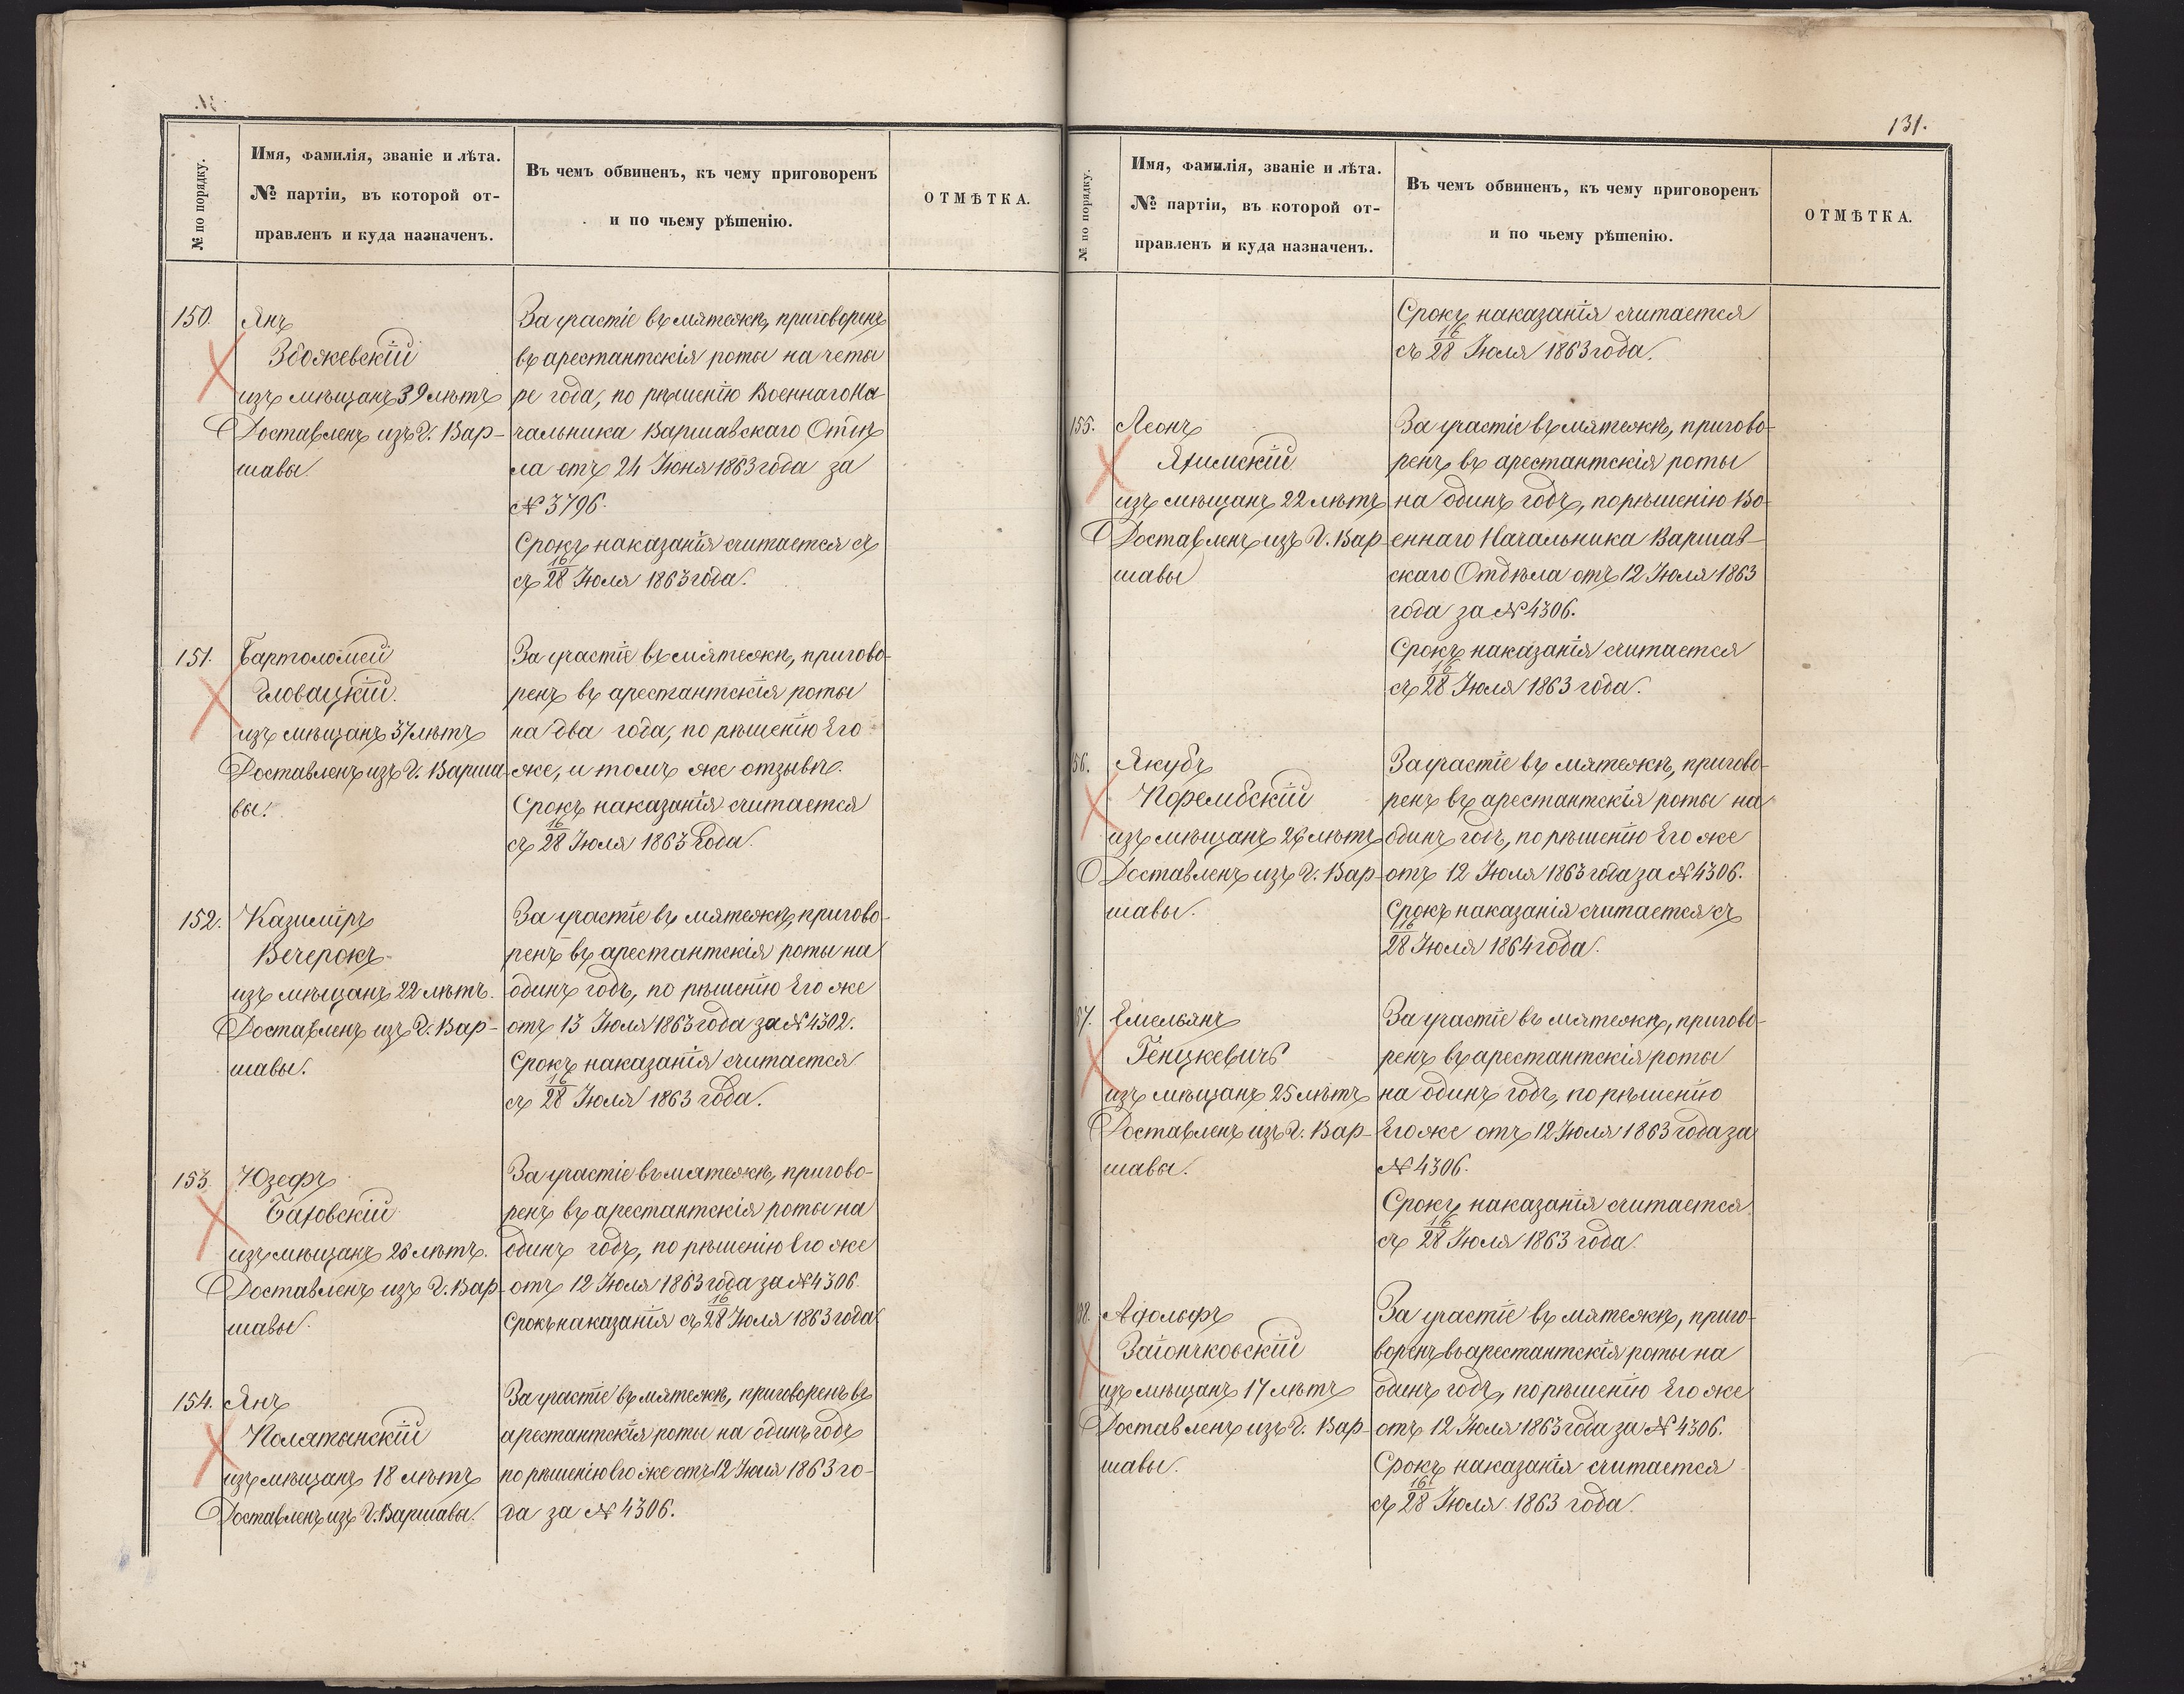 № по порядку.
Имя, фамилія, званіе и лѣта.
№ партіи, въ которой от-
правленъ и куда назначенъ.
Въ чемъ обвиненъ, къ чему приговоренъ
и по чьему рѣшенію.
ОТМѢТКА.
150.
Янъ
Збожевскій
изъ мѣщанъ 39 лѣтъ
Доставленъ изъ Г. Вар-
шавы
За участіе въ мятежѣ, приговоренъ
въ арестантскія роты на четы
ре года, по рѣшенію Военнаго На
чальника Варшавскаго Отдѣ
ла отъ 24 Іюня 1863 года за
№ 3796.
Срокъ наказанія считается съ
съ 16/28 Іюля 1863 года.
151.
Бартоломей
Гловацкій.
изъ мѣщанъ 37 лѣтъ
Доставленъ изъ Г. Варша-
вы.
За участіе въ мятежѣ, пригово-
ренъ въ арестантскія роты
на два года, по рѣшенію Его
же, и томъ же отзывѣ.
Срокъ наказанія считается
съ 16/28 Іюля 1863 Года.
152.
Казиміръ
Вечерокъ
изъ мѣщанъ 22 лѣтъ.
Доставленъ изъ Г. Вар-
шавы.
За участіе въ мятежѣ, пригово-
ренъ въ арестантскія роты на
одинъ годъ, по рѣшенію Его же
отъ 13 Іюля 1863 года за № 4302.
Срокъ наказанія считается
съ 16/28 Іюля 1863 года.
153.
Юзефъ
изъ мѣщанъ лѣтъ.
Доставленъ изъ Г. Вар-
шавы.
За участіе въ мятежѣ, пригово-
ренъ въ арестантскія роты на
одинъ годъ, по рѣшенію Его же
отъ 12 Іюля 1863 года за № 4306.
Срокъ наказанія съ 16/28 Іюля 1863 года.
154.
Янъ
Полятынскій
изъ мѣщанъ 18 лѣтъ
Доставленъ изъ Г. Варшавы.
За участіе въ мятежѣ, приговоренъ въ
арестантскія роты на одинъ годъ
по рѣшенію Его же отъ 12 Іюля 1863 го-
да за № 4306.
131.
№ по порядку.
Имя, фамилія, званіе и лѣта.
№ партіи, въ которой от-
правленъ и куда назначенъ.
Въ чемъ обвиненъ, къ чему приговоренъ
и по чьему рѣшенію.
ОТМѢТКА.
Срокъ наказанія считается
съ 16/28 Іюля 1863 года.
155.
Леонъ
изъ мѣщанъ 22 лѣтъ
Доставленъ изъ Г. Вар-
шавы
За участіе въ мятежѣ, пригово-
ренъ въ арестантскія роты
на одинъ годъ, по рѣшенію Во-
еннаго Начальника Варшав-
скаго Отдѣла отъ 12 Іюля 1863
года за № 4306.
Срокъ наказанія считается
съ 16/28 Іюля 1863 года.
56.
Якубъ
Порембскій
изъ мѣщанъ 26 лѣтъ
Доставленъ изъ Г. Вар-
шавы.
За участіе въ мятежѣ, пригово-
ренъ въ арестантскія роты на
одинъ годъ, по рѣшенію Его же
отъ 12 Іюля 1863 года за № 4306.
Срокъ наказанія считается съ
16/28 Іюля 1864 года.
57.
Емельянъ
Генцкевичъ
изъ мѣщанъ 25 лѣтъ
Доставленъ изъ Г. Вар-
шавы.
За участіе въ мятежѣ, пригово-
ренъ въ арестантскія роты
на одинъ годъ, по рѣшенію
Его же отъ 12 Іюля 1863 года за
№ 4306.
Срокъ наказанія считается
съ 16/28 Іюля 1863 года.
Адольфъ
Заіончковскій
изъ мѣщанъ 17 лѣтъ
Доставленъ изъ Г. Вар-
шавы.
За участіе въ мятежѣ, приго-
воренъ въ арестантскія роты на
одинъ годъ, по рѣшенію Его же
отъ 12 Іюля 1863 года за № 4306.
Срокъ наказанія считается
съ 16/28 Іюля 1863 года.